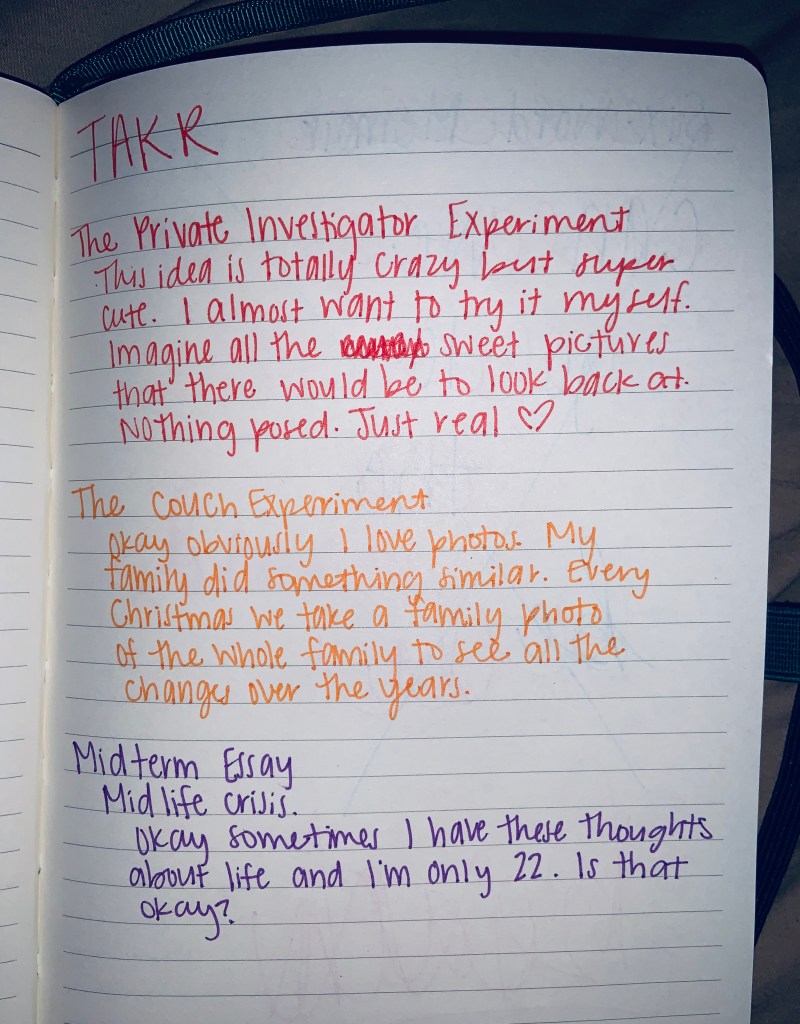 TAKR
The Private Investigator Experiment
This idea is totally crazy but super
cute. I almost want to try it myself.
Imagine all the sweet pictures
that there would be to look back at.
Nothing posed. Just real ♡
The Couch Experiment
Okay obviously I love photos. My
family did something similar. Every
Christmas we take a family photo
of the whole family to see all the
changes over the years.
Midterm Essay
Midlife crisis.
Okay sometimes I have these thoughts
about life and I'm only 22. Is that
okay?